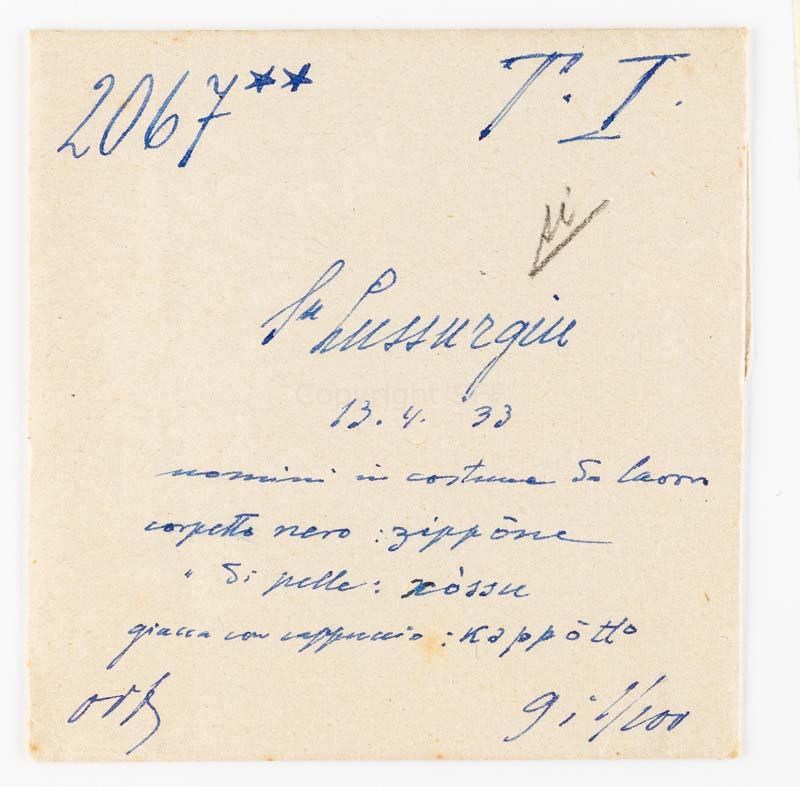 2067** T. I.
Su Lussurgiu
13. 4. 33
uomini in costume da lavoro
corpetto nero : zippōne
" di pelle :
giacca con cappuccio : kappōtto
9 i 1/100